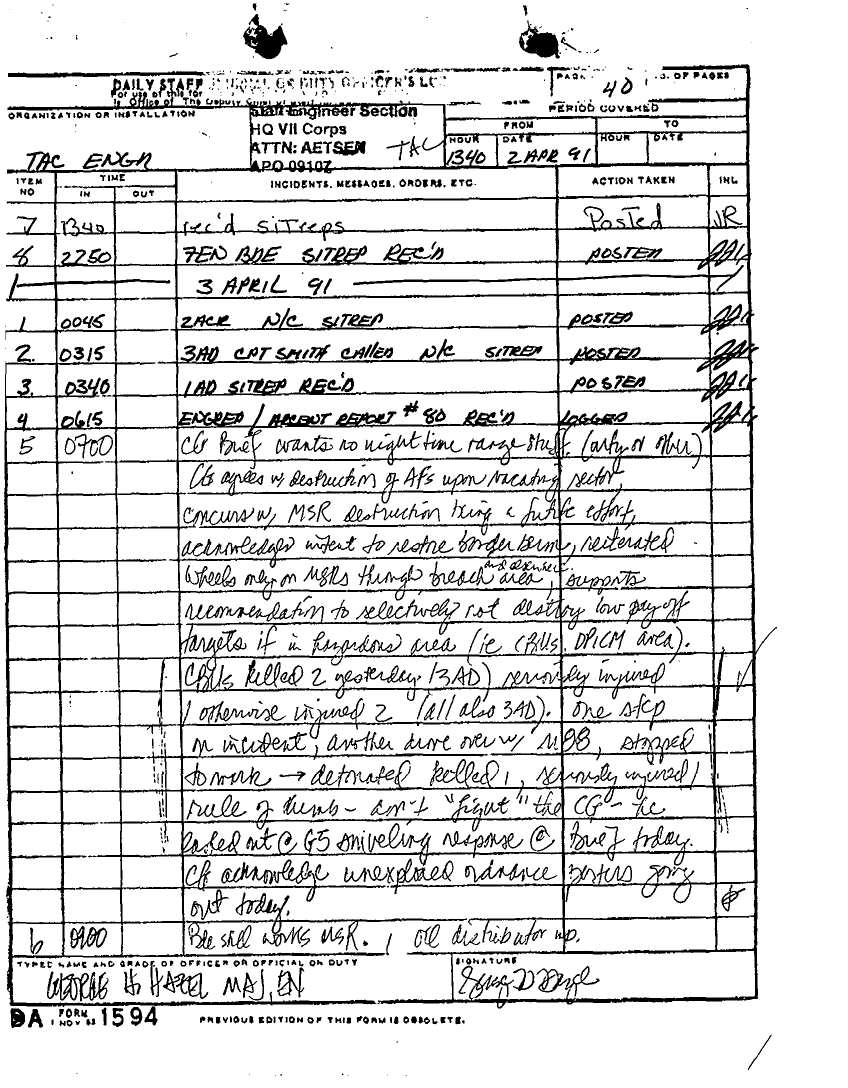 DAILY STAFF JOURNAL OR DUTY OFFICER'S LOG
PAGE 40 NO. OF PAGES
For use of this
PERIOD COVERED
ORGANIZATION OR INSTALLATION
TAC ENGR
Staff Engineer Section
HQ VII Corps
ATTN: AETSEN TAC
APO 09107
FROM TO
HOUR DATE HOUR DATE
1340 2 APR 91
ITEM NO TIME IN OUT INCIDENTS, MESSAGES, ORDERS, ETC. ACTION TAKEN INL
7 1340 rec'd SITREPS Posted JR
8 2250 7EN BDE SITREP REC'D POSTED
3 APRIL 91
1 0045 2ACR N/C SITREP POSTED
2. 0315 3AD CPT SMITH CALLED N/C SITREP POSTED
3. 0340 1AD SITREP REC'D POSTED
4 0615 ENGRED / ARCENT REPORT #80 REC'D LOGGED
5 0700 CG Brief wants no night time range stuff. (arty or other)
CG agrees w/ destruction of AFs upon vacating sector,
concurs w/ MSR destruction being a futile effort,
acknowledged intent to restore border berm, reiterated
wheels only on MSRs through breach area, supports
recommendation to selectively not destroy low payoff
targets if in hazardous area (ie CBUs, DPICM area).
CBUs killed 2 yesterday (3AD) seriously injured
1 otherwise injured 2 (all also 3AD). one step
on incident, another drive over w/ M98, stopped
to work → detonated killed 1, seriously injured 1
rule of thumb - don't "fight" the CG - he
lashed out @ G5 sniveling response @ Brief today.
CG acknowledge unexploded ordnance posters going
out today.
6 0900 Bde still works MSR. 1 oil distributor up.
TYPED NAME AND GRADE OF OFFICER OR OFFICIAL ON DUTY SIGNATURE
GEORGE H HAZEL MAJ, EN
DA FORM 1 NOV 62 1594 PREVIOUS EDITION OF THIS FORM IS OBSOLETE.